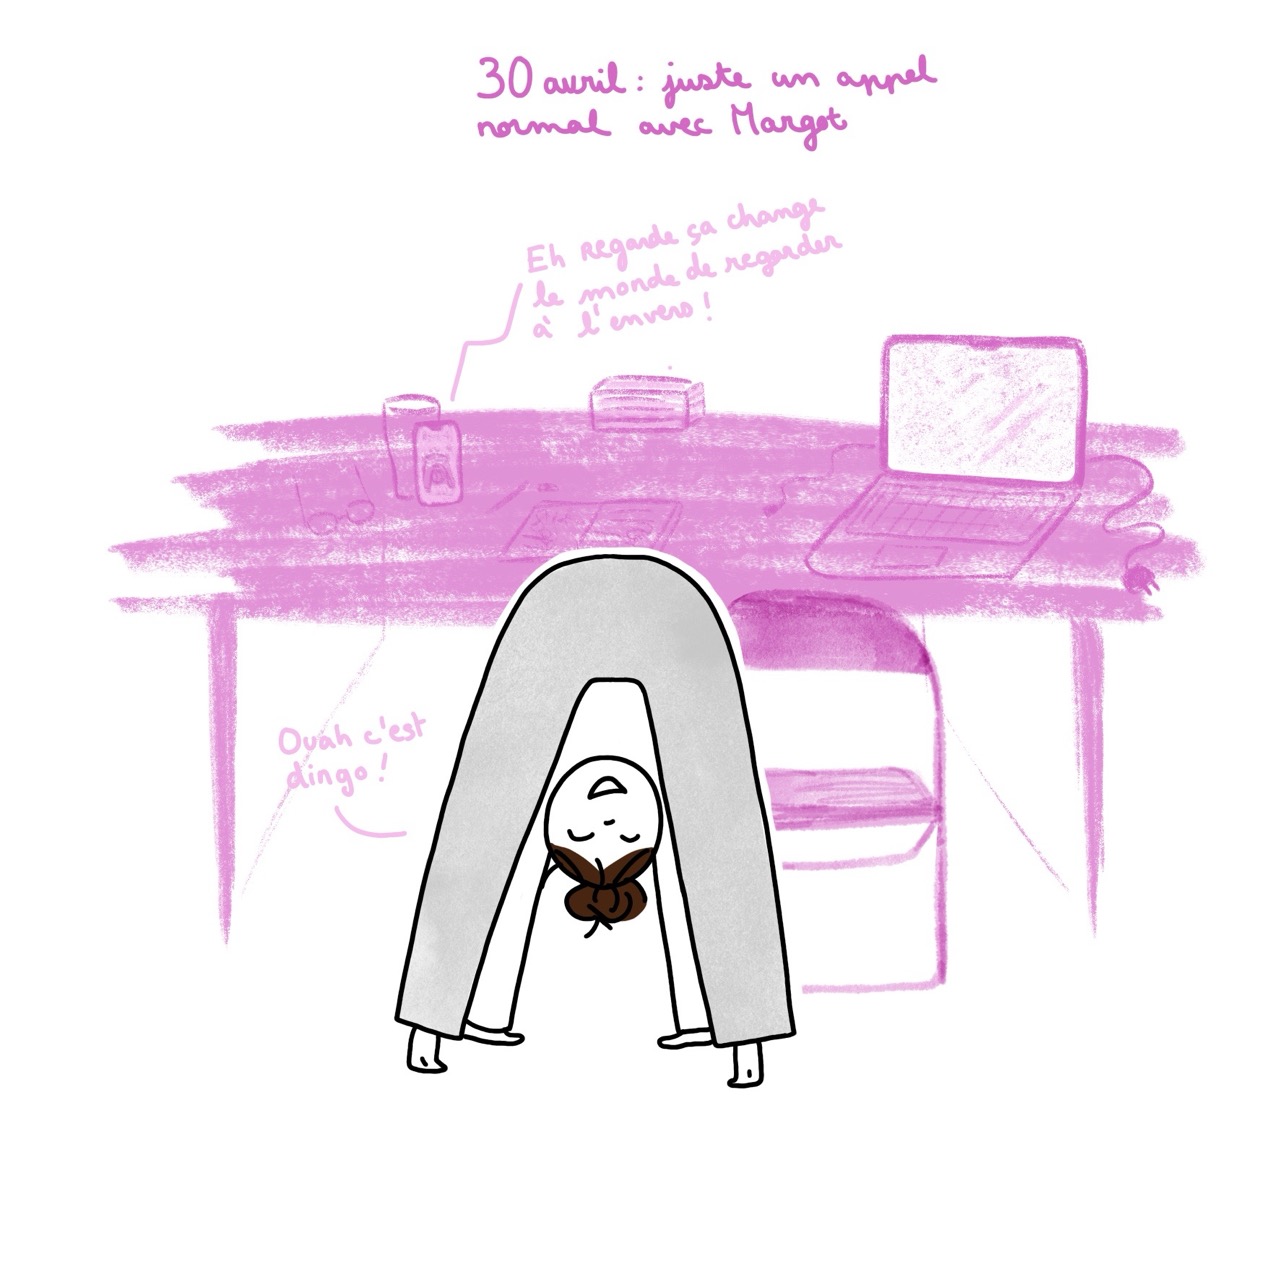 30 avril : juste un appel
normal avec Margot
Eh regarde ça change
le monde de regarder
à l'envers !
Ouah c'est
dingo !